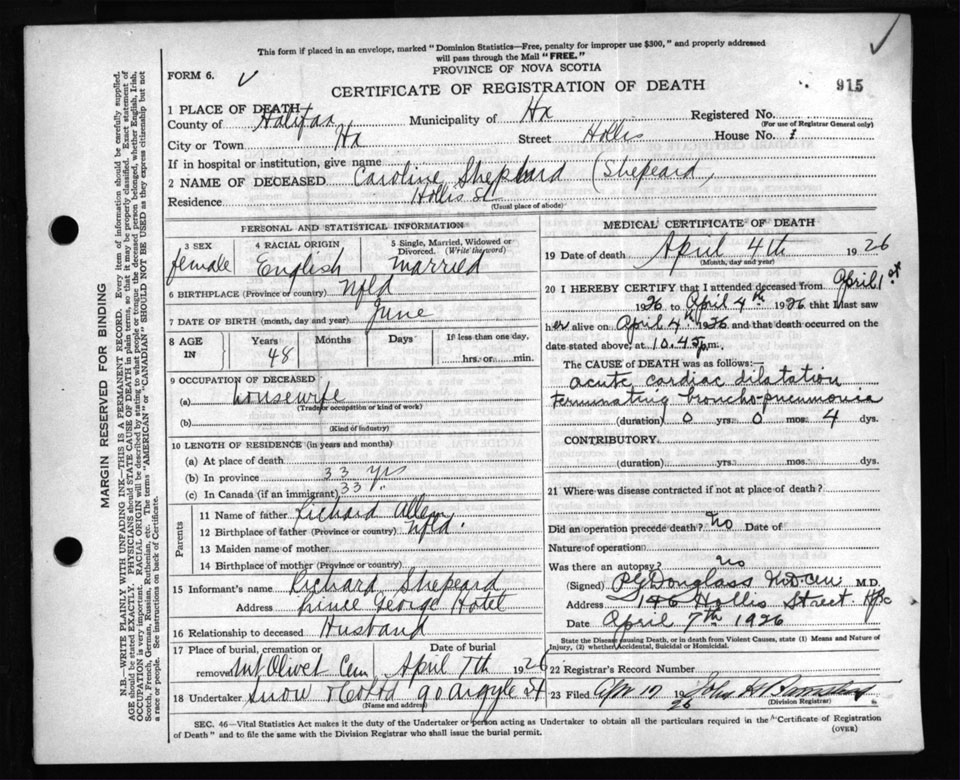 This form if placed in an envelope, marked "Dominion Statistics—Free, penalty for improper use $300," and properly addressed
will pass through the Mail "FREE."
FORM 6.
PROVINCE OF NOVA SCOTIA
CERTIFICATE OF REGISTRATION OF DEATH
915
1 PLACE OF DEATH
County of Halifax Municipality of Hx Registered No.
(For use of Registrar General only)
City or Town Hx Street Hollis House No.
If in hospital or institution, give name
2 NAME OF DECEASED Caroline Shepherd (Shepeard)
Residence Hollis St
(Usual place of abode)
PERSONAL AND STATISTICAL INFORMATION
3 SEX 4 RACIAL ORIGIN 5 Single, Married, Widowed or
Divorced. (Write the word)
female English married
6 BIRTHPLACE (Province or country) Nfld
7 DATE OF BIRTH (month, day and year) June
8 AGE IN Years Months Days If less than one day,
48 hrs. or min.
9 OCCUPATION OF DECEASED
(a) housewife
(Trade or occupation or kind of work)
(b)
(Kind of industry)
10 LENGTH OF RESIDENCE (in years and months)
(a) At place of death
(b) In province 33 yrs
(c) In Canada (if an immigrant) 33
Parents
11 Name of father Richard Allen
12 Birthplace of father (Province or country) Nfld.
13 Maiden name of mother
14 Birthplace of mother (Province or country)
15 Informant's name Richard Shepeard
Address Prince George Hotel
16 Relationship to deceased Husband
17 Place of burial, cremation or Date of burial
removal Mt Olivet Cem April 7th 1926
18 Undertaker Snow & Co Ltd 90 Argyle St
(Name and address)
MEDICAL CERTIFICATE OF DEATH
19 Date of death April 4th 1926
(Month, day and year)
20 I HEREBY CERTIFY that I attended deceased from April 1st
1926 to April 4th 1926 that I last saw
her alive on April 4th 1926 and that death occurred on
date stated above, at 10.45 p.m.
The CAUSE of DEATH was as follows:—
acute cardiac dilatation
terminating broncho-pneumonia
(duration) 0 yrs. 0 mos. 4 dys.
CONTRIBUTORY.
(duration) yrs. mos. dys.
21 Where was disease contracted if not at place of death?
Did an operation precede death? no Date of
Nature of operation
Was there an autopsy? no
(Signed) Douglass M.D. M.D.
Address 146 Hollis Street Hfx
Date April 7th 1926
State the Disease causing Death, or in death from Violent Causes, state (1) Means and Nature of
Injury, (2) whether Accidental, Suicidal or Homicidal.
22 Registrar's Record Number
23 Filed 1926 John
(Division Registrar)
SEC. 46—Vital Statistics Act makes it the duty of the Undertaker or person acting as Undertaker to obtain all the particulars required in the "Certificate of Registration
of Death" and to file the same with the Division Registrar who shall issue the burial permit.
(OVER)
MARGIN RESERVED FOR BINDING
N.B.—WRITE PLAINLY WITH UNFADING INK—THIS IS A PERMANENT RECORD. Every item of information should be carefully supplied.
AGE should be stated EXACTLY. PHYSICIANS should STATE CAUSE OF DEATH in plain terms, so that it may be properly classified. Exact statement of
OCCUPATION is very important. RACIAL ORIGIN will be described by stating to what people or tongue the deceased person belonged, whether English, Irish,
Scotch, French, German, Russian, Ruthenian, etc. The terms "AMERICAN" or "CANADIAN" SHOULD NOT BE USED as they express citizenship but not
a race or people. See instructions on back of Certificate.